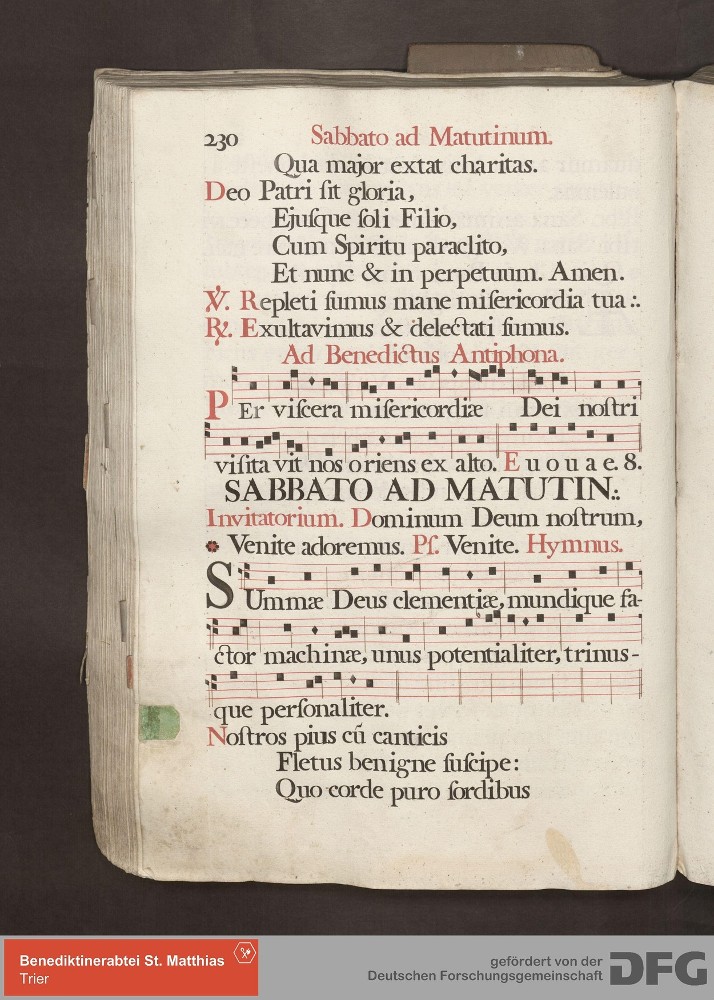 230 Sabbato ad Matutinum.
Qua major extat charitas.
Deo Patri ſit gloria,
Ejuſque ſoli Filio,
Cum Spiritu paraclito,
Et nunc & in perpetuum. Amen.
℣. Repleti ſumus mane miſericordia tua :.
℟. Exultavimus & delectati ſumus.
Ad Benedictus Antiphona.
PEr viſcera miſericordiæ Dei noſtri
viſita vit nos oriens ex alto. E u o u a e. 8.
SABBATO AD MATUTIN:.
Invitatorium. Dominum Deum noſtrum,
Venite adoremus. Pſ. Venite. Hymnus.
SUmmæ Deus clementiæ, mundique fa-
ctor machinæ, unus potentialiter, trinus-
que perſonaliter.
Noſtros pius cū canticis
Fletus benigne ſuſcipe:
Quo corde puro ſordibus
Benediktinerabtei St. Matthias
Trier
gefördert von der
Deutschen Forschungsgemeinschaft
DFG